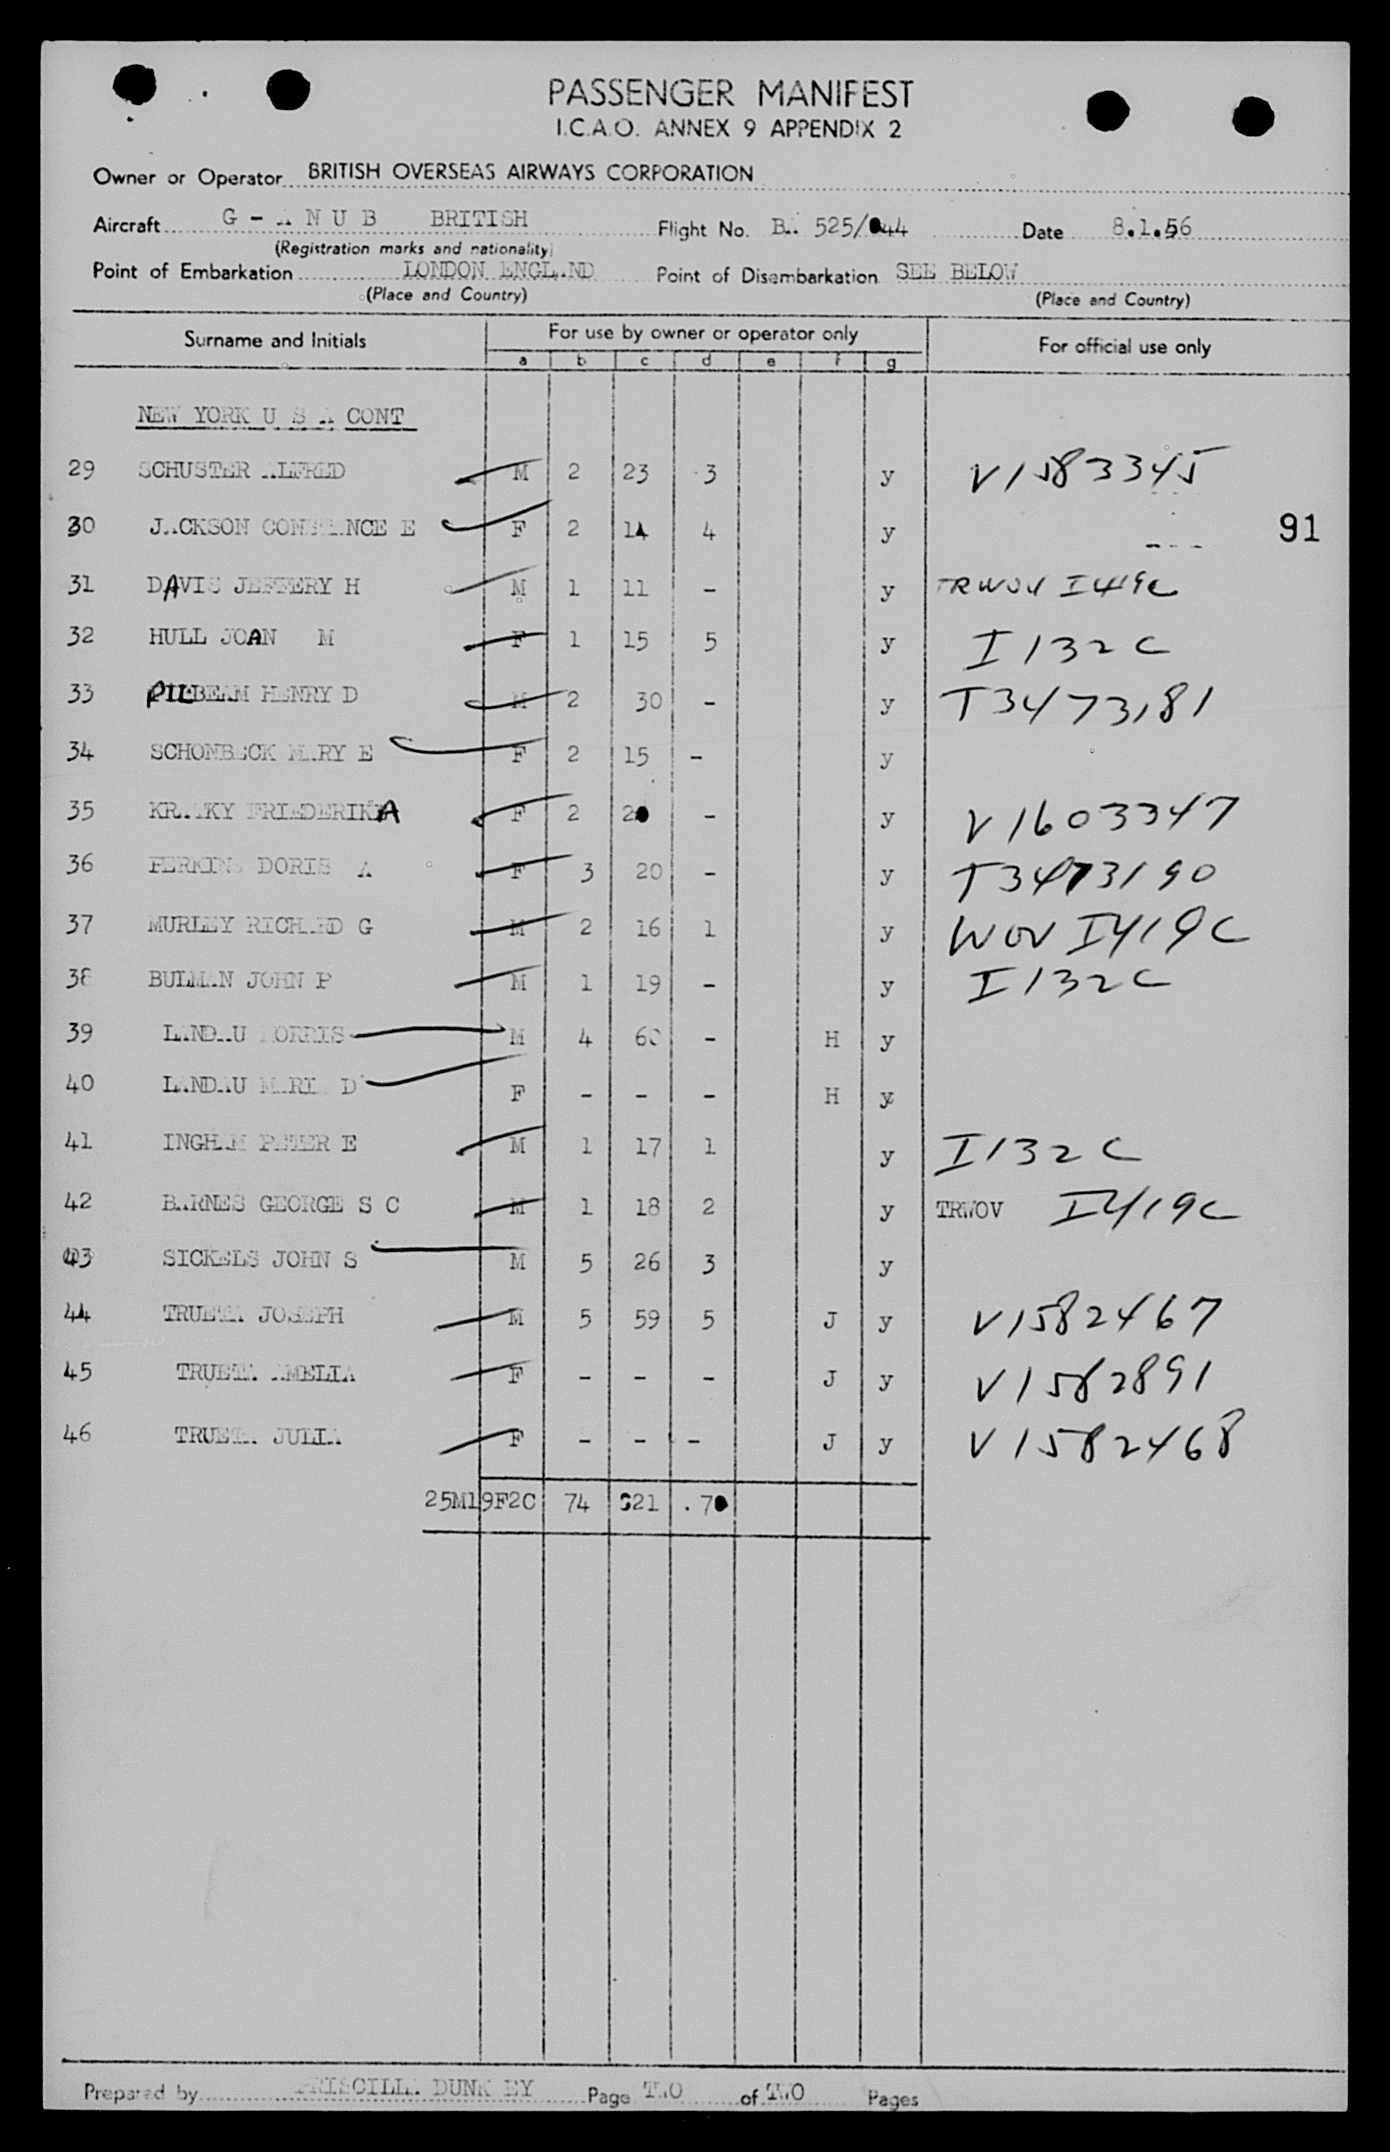 PASSENGER MANIFEST
I.C.A.O. ANNEX 9 APPENDIX 2
Owner or Operator BRITISH OVERSEAS AIRWAYS CORPORATION
Aircraft G - A N U B BRITISH Flight No. BA 525/044 Date 8.1.56
(Registration marks and nationality)
Point of Embarkation LONDON ENGLAND Point of Disembarkation SEE BELOW
(Place and Country) (Place and Country)
Surname and Initials For use by owner or operator only For official use only
a b c d e f g
NEW YORK U S A CONT
29 SCHUSTER ALFRED M 2 23 3 y V1583345
91
30 JACKSON CONSTANCE E F 2 14 4 y
31 DAVIS JEFFERY H M 1 11 - y TRWOV I419C
32 HULL JOAN M F 1 15 5 y I132C
33 PILBEAM HENRY D M 2 30 - y T3473181
34 SCHONBECK MARY E F 2 15 - y
35 KRAAKY FRIEDERIKA F 2 2 - y V1603347
36 PERKINS DORIS A F 3 20 - y T3473190
37 MURLEY RICHARD G M 2 16 1 y WOV I419C
38 BULMAN JOHN P M 1 19 - y I132C
39 LANDAU MORRIS M 4 60 - H y
40 LANDAU MARIA D F - - - H y
41 INGHAM PETER E M 1 17 1 y I132C
42 BARNES GEORGE S C M 1 18 2 y TRWOV I419C
43 SICKELS JOHN S M 5 26 3 y
44 TRUETA JOSEPH M 5 59 5 J y V1582467
45 TRUETA AMELIA F - - - J y V1582891
46 TRUETA JULIA F - - - J y V1582468
25M19F2C 74 821 .70
Prepared by PRISCILLA DUNKLEY Page TWO of TWO Pages